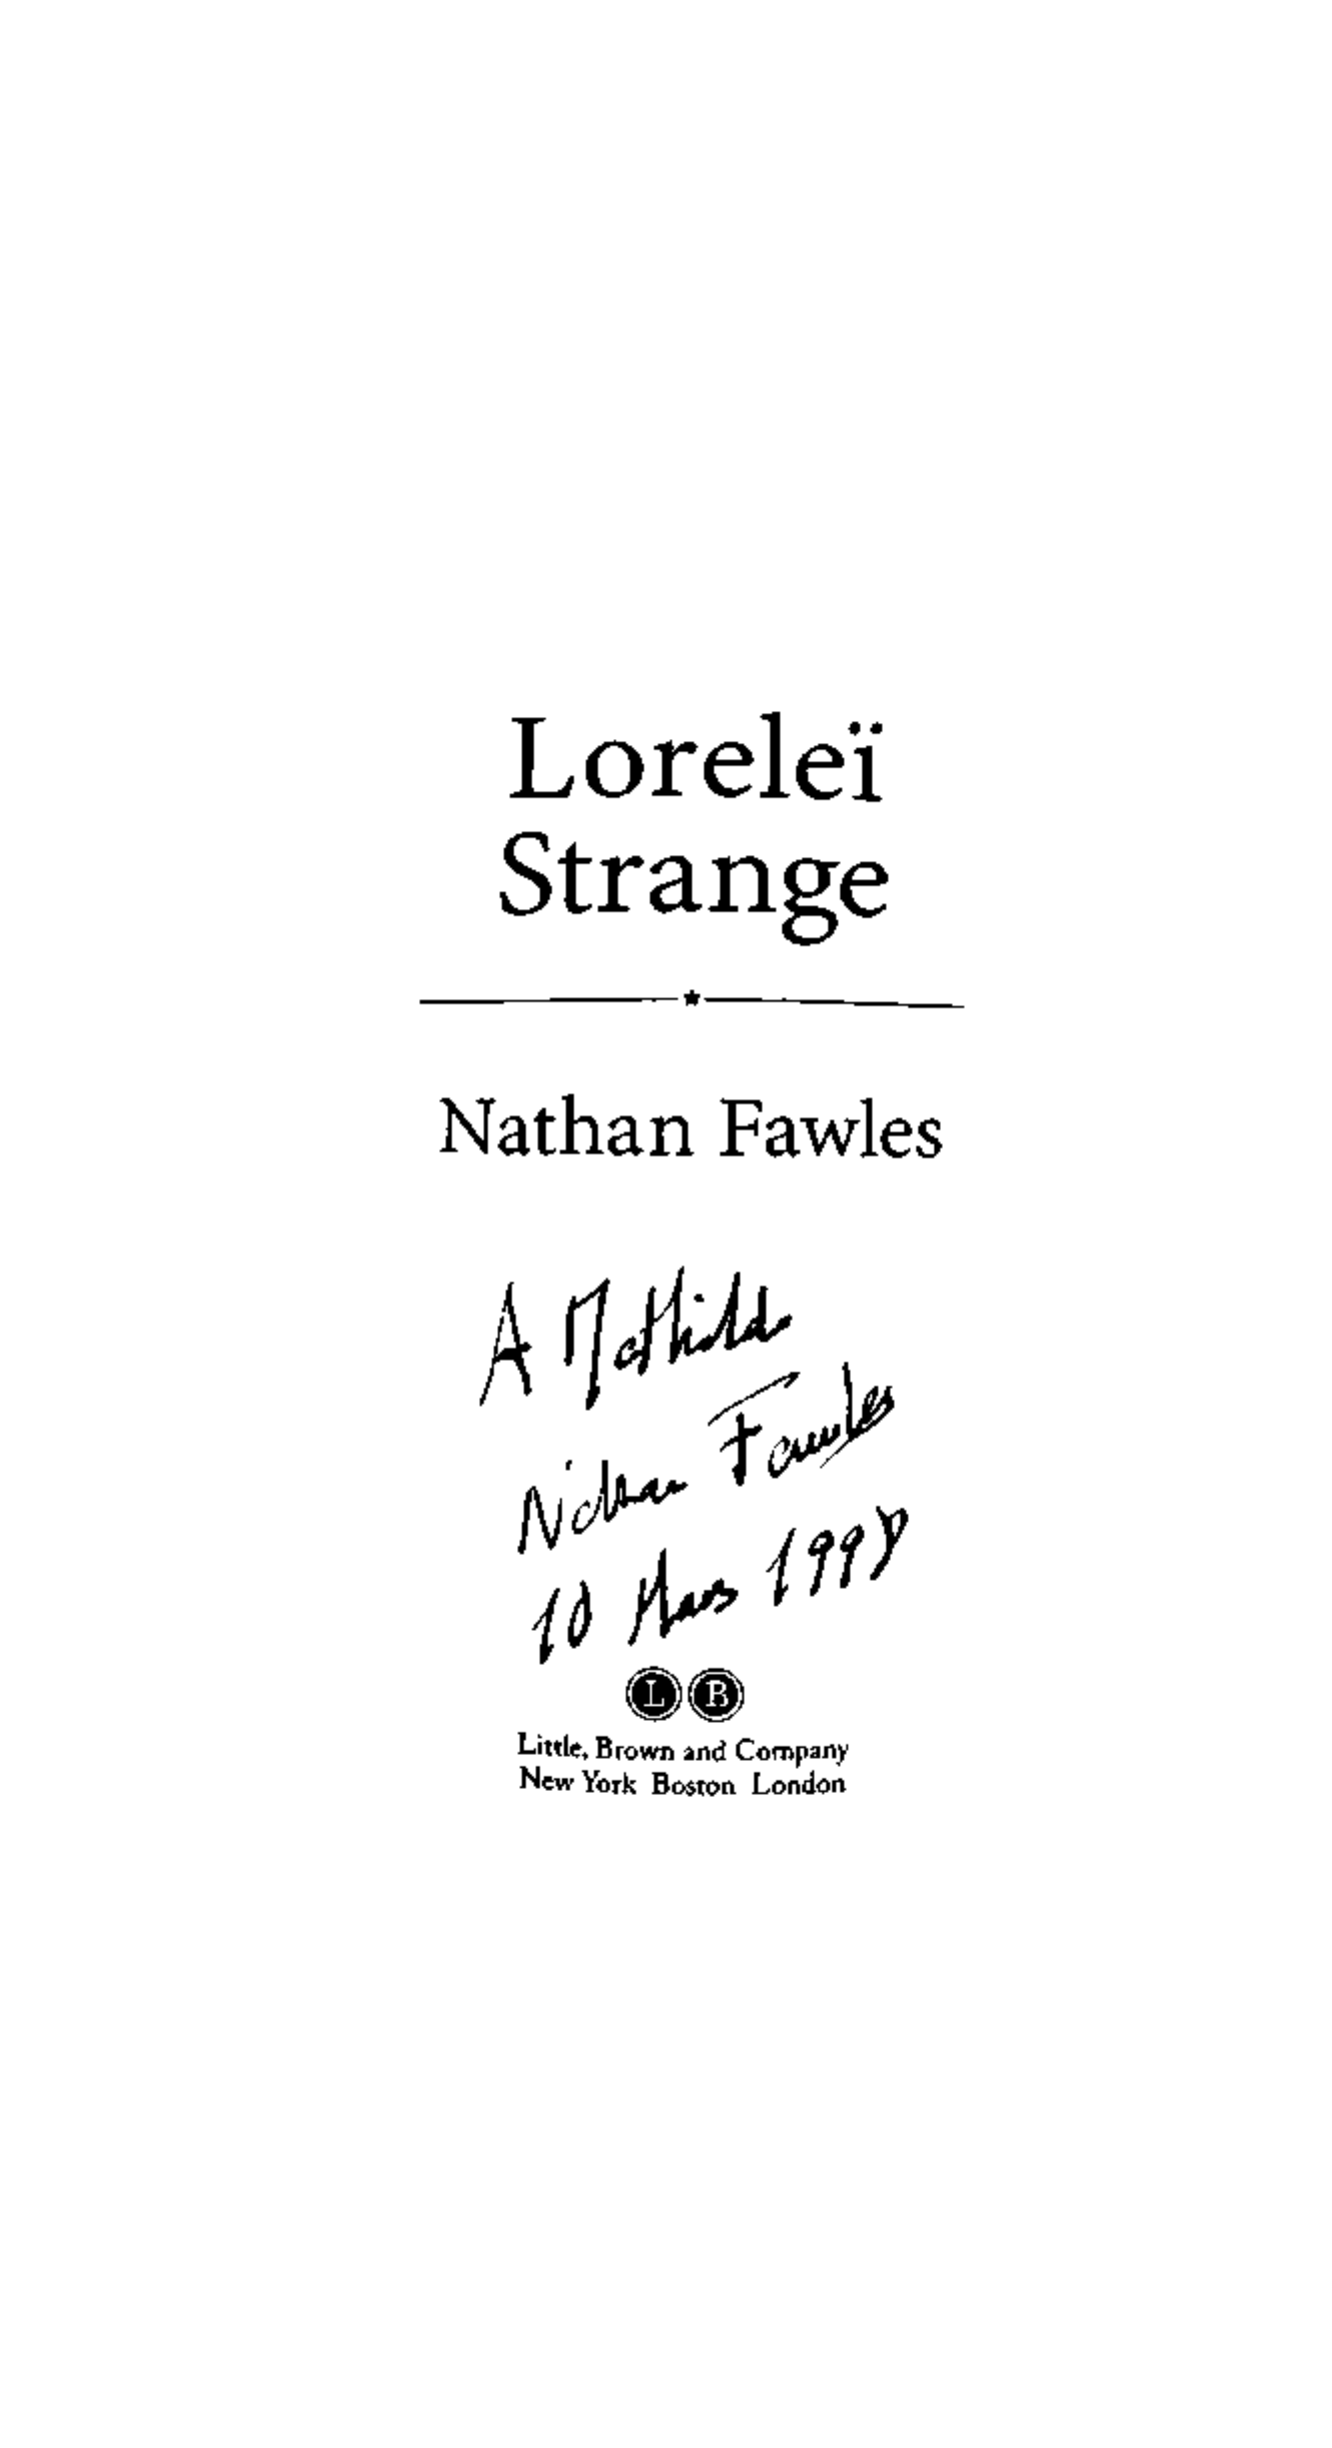 Loreleï
Strange
Nathan Fawles
A Mathilde
Nathan Fawles
10 Mars 1998
L B
Little, Brown and Company
New York Boston London